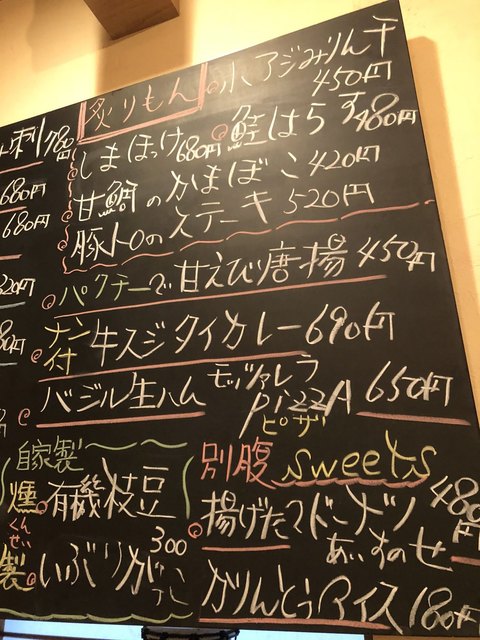 炙りもん
の小アジみりん干
450円
刺 780円
680円
680円
しまほっけ 680円
鮭はらす 480円
甘鯛のかまぼこ 420円
豚トロのステーキ 520円
パクチーで甘えび唐揚 450円
ナン付 牛スジタイカレー 690円
バジル生ハム モッツァレラ PIZZA 650円
ピザ
自家製
燻製
くんせい
有機枝豆
300
いぶりがっこ
別腹 sweets
揚げたてドーナツ 480円
あいすのせ
かりんとうアイス 180円